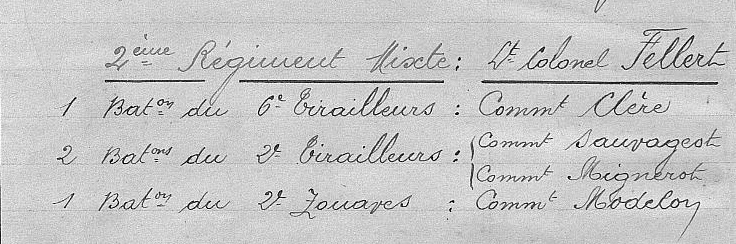 2ème Régiment Mixte : Lt Colonel Fellert
1 Baton du 6e Tirailleurs : Commt Clère
2 Batons du 2e Tirailleurs : { Commt Sauvageot
Commt Mignerot
1 Baton du 2e Zouaves : Commt Modelon